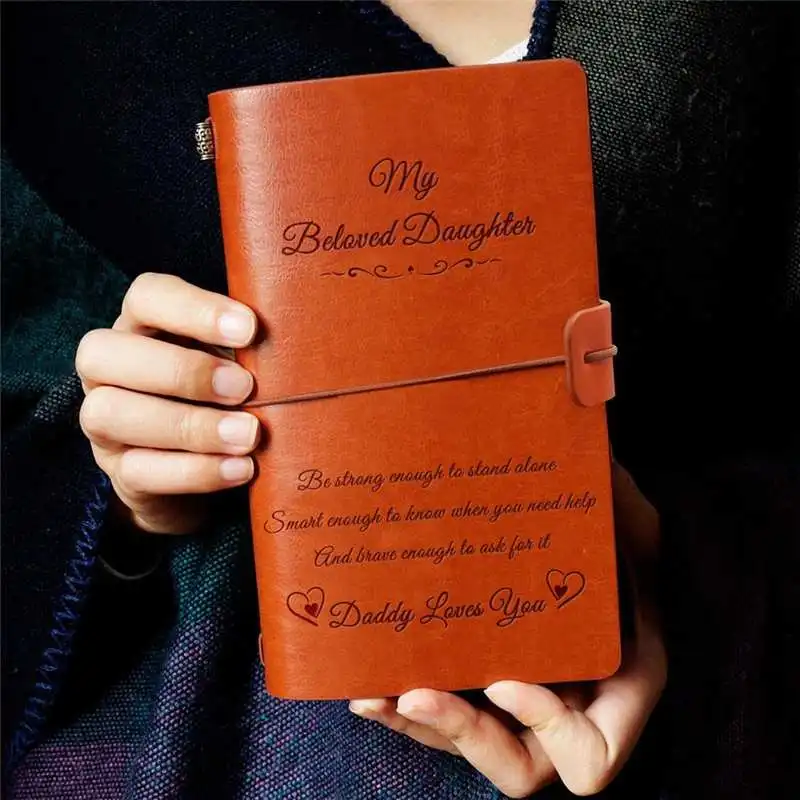 My
Beloved Daughter
Be strong enough to stand alone
Smart enough to know when you need help
And brave enough to ask for it
Daddy Loves You